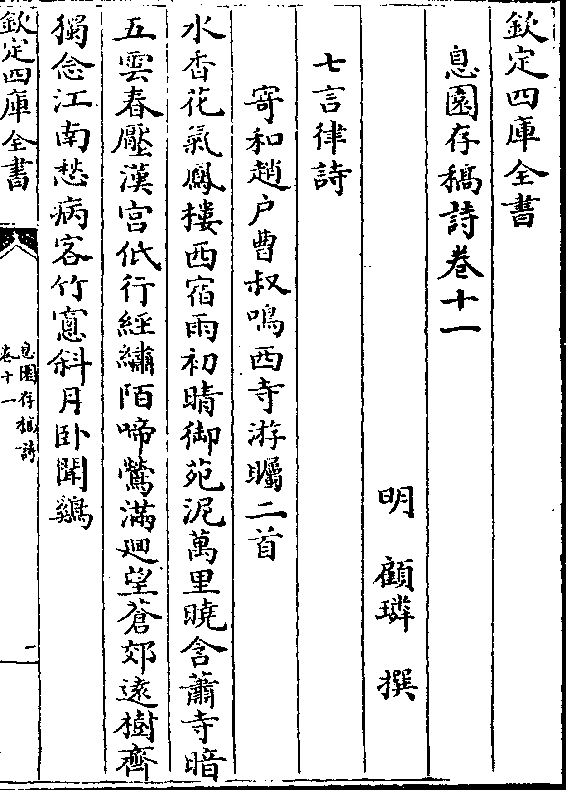 欽定四庫全書
息園存稿詩卷十一
明 顧璘 撰
七言律詩
寄和趙户曹叔鳴西寺游矚二首
水杏花氣鳳樓西宿雨初晴御苑泥萬里曉含蕭寺暗
五雲春壓漢宫低行經繡陌啼鶯滿迴望蒼郊逺樹齊
獨念江南愁病客竹窻斜月卧聞鷄
欽定四庫全書
息園存稿詩
卷十一
一